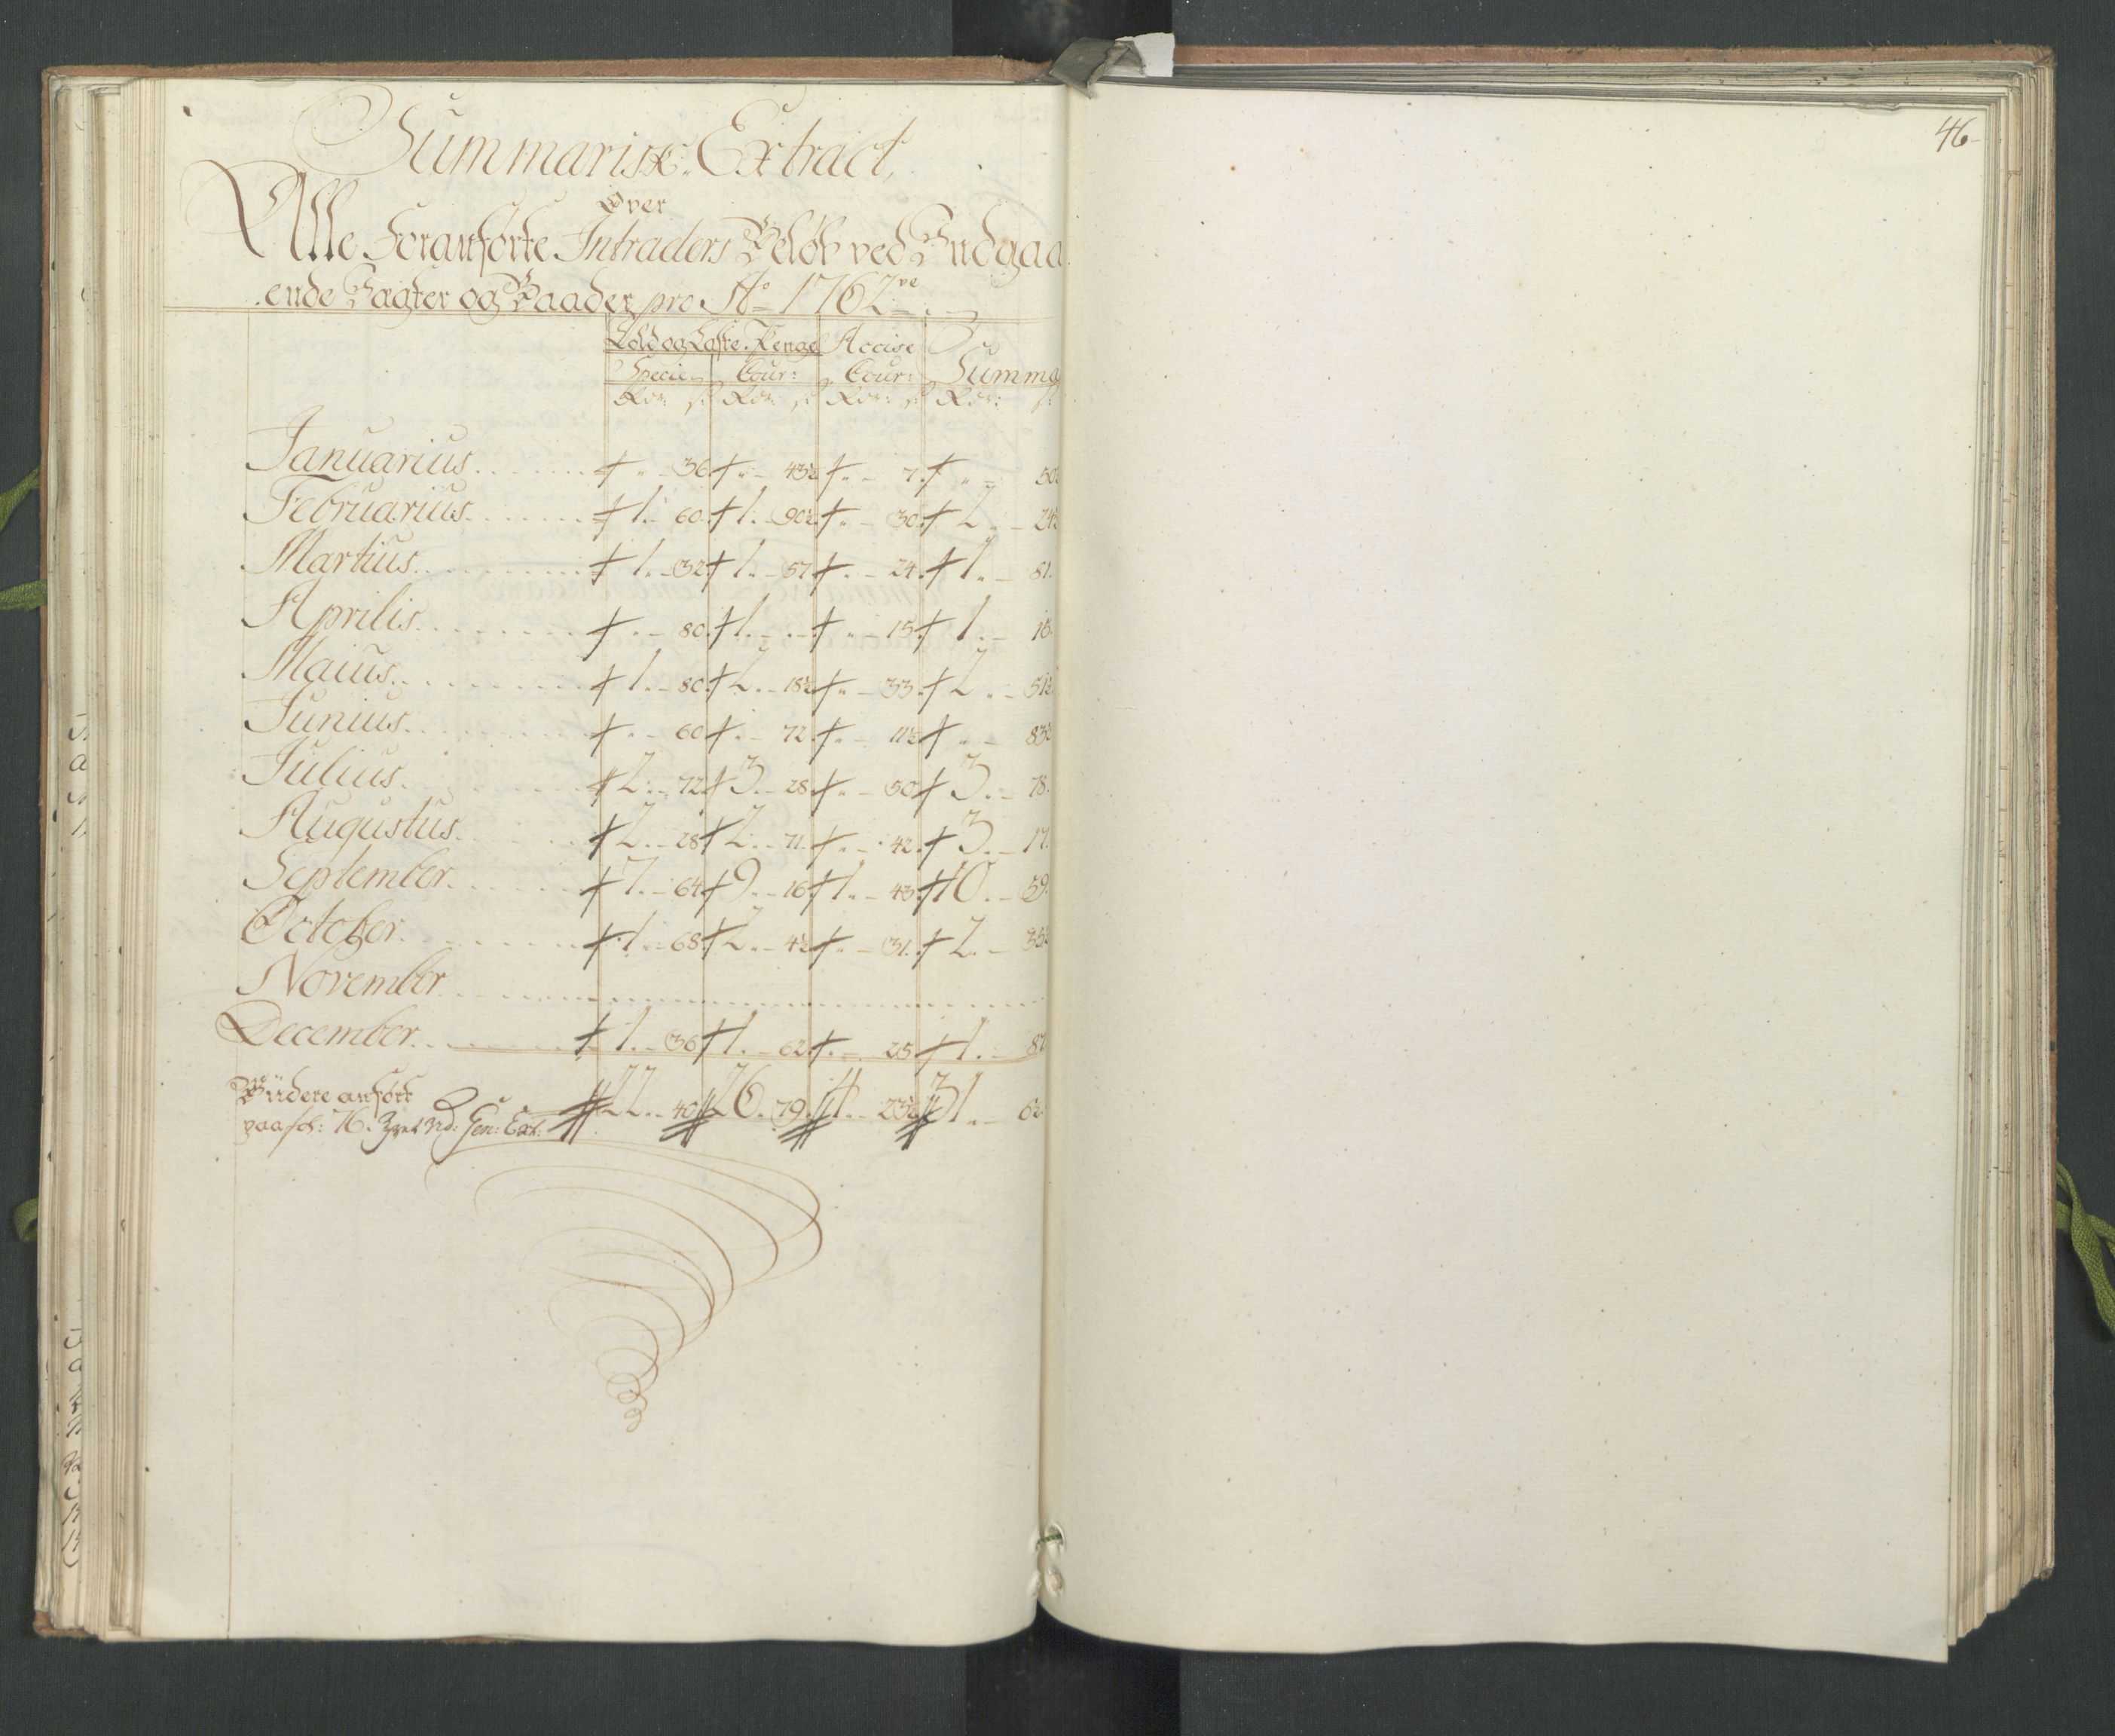 Summarisk Extract,
Over
Alle foranførte Intraders Beløb ved Indgaa
ende Jagter og Baader pro Ao 1762ve
Told og Laste Penge Accise
Specie Cour: Cour: Summa
Rdr: s: Rdr: s: Rdr: s: Rdr: s:
Januarius " 36 " 43½ " 7 " 50½
Februarius 1 60 1 90½ " 30 2 24½
Martius 1 32 1 57 " 24 1 81
Aprilis " 80 1 " " 15 1 15
Maius 1 80 2 18½ " 33 2 51½
Junius " 60 " 72 " 11½ " 83½
Julius 2 72 3 28 " 50 3 78
Augustus 2 28 2 71 " 42 3 17
September 7 64 9 16 1 43 10 59
October 1 68 2 4½ " 31 2 35½
November
December 1 36 1 62 " 25 1 87
Videre anført
paa fol: 76. Gen: Ext: 22 40 26 79 4 23½ 31 6½
46